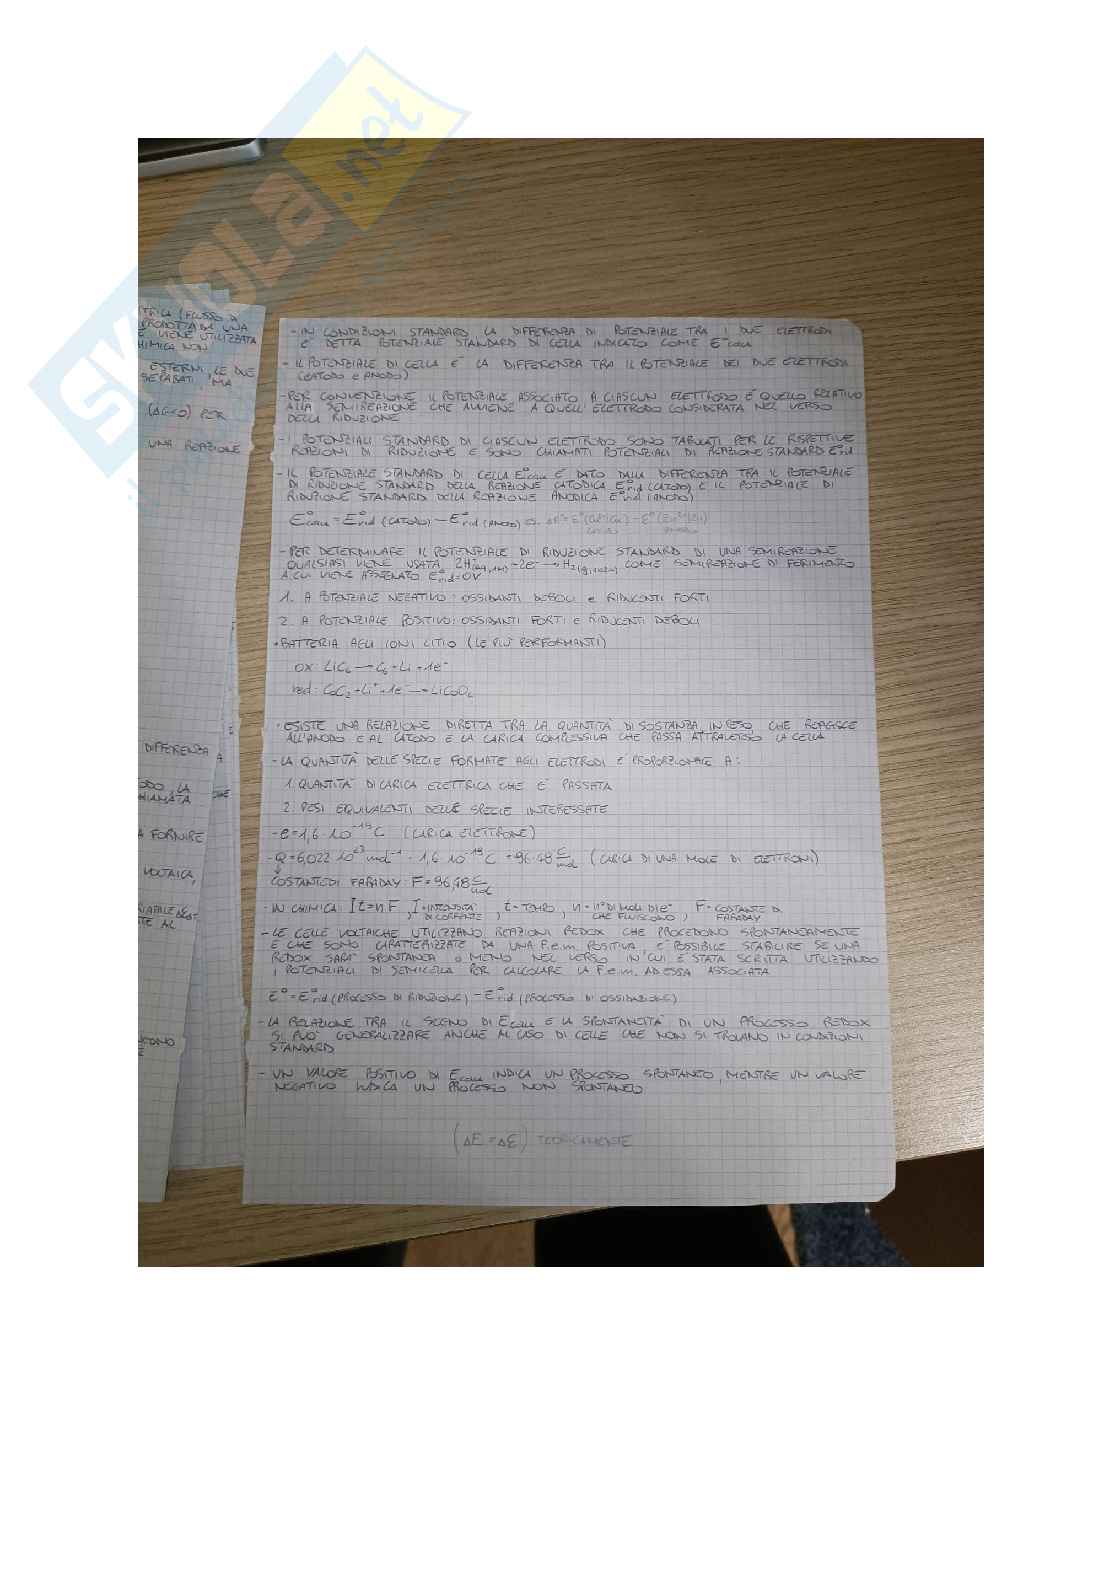 SKUOLA.net
TRICA (FLUSSO DI
PRODOTTA DA UNA
E VIENE UTILIZZATA
HIMICA NON
ESTERNI, LE DUE
SEPARATI, MA
(ΔG<0) PER
UNA REAZIONE
DIFFERENZA
ODO, LA
HIAMATA
A FORNIRE
VOLTAICA,
TE AL
- IN CONDIZIONI STANDARD LA DIFFERENZA DI POTENZIALE TRA I DUE ELETTRODI
E' DETTA POTENZIALE STANDARD DI CELLA INDICATO COME E°cella
- IL POTENZIALE DI CELLA E' LA DIFFERENZA TRA IL POTENZIALE DEI DUE ELETTRODI
(CATODO e ANODO)
- PER CONVENZIONE IL POTENZIALE ASSOCIATO A CIASCUN ELETTRODO E' QUELLO RELATIVO
ALLA SEMIREAZIONE CHE AVVIENE A QUELL'ELETTRODO CONSIDERATA NEL VERSO
DELLA RIDUZIONE
- I POTENZIALI STANDARD DI CIASCUN ELETTRODO SONO TABULATI PER LE RISPETTIVE
REAZIONI DI RIDUZIONE E SONO CHIAMATI POTENZIALI DI REAZIONE STANDARD E°rid
- IL POTENZIALE STANDARD DI CELLA E°cella E' DATO DALLA DIFFERENZA TRA IL POTENZIALE
DI RIDUZIONE STANDARD DELLA REAZIONE CATODICA E°rid (CATODO) E IL POTENZIALE DI
RIDUZIONE STANDARD DELLA REAZIONE ANODICA E°rid (ANODO)
E°cella = E°rid (CATODO) - E°rid (ANODO)
- PER DETERMINARE IL POTENZIALE DI RIDUZIONE STANDARD DI UNA SEMIREAZIONE
QUALSIASI VIENE USATA COME SEMIREAZIONE DI RIFERIMENTO
A CUI VIENE ASSEGNATO E°rid=0V
1. A POTENZIALE NEGATIVO: OSSIDANTI DEBOLI e RIDUCENTI FORTI
2. A POTENZIALE POSITIVO: OSSIDANTI FORTI e RIDUCENTI DEBOLI
• BATTERIA AGLI IONI LITIO (LE PIU' PERFORMANTI)
OX: LiC6 → C6 + Li + 1e⁻
red: CoO2 + Li⁺ + 1e⁻ → LiCoO2
- ESISTE UNA RELAZIONE DIRETTA TRA LA QUANTITA' DI SOSTANZA, IN PESO, CHE REAGISCE
ALL'ANODO E AL CATODO E LA CARICA COMPLESSIVA CHE PASSA ATTRAVERSO LA CELLA
- LA QUANTITA' DELLE SPECIE FORMATE AGLI ELETTRODI E' PROPORZIONALE A:
1. QUANTITA' DI CARICA ELETTRICA CHE E' PASSATA
2. PESI EQUIVALENTI DELLE SPECIE INTERESSATE
- e = 1,6 · 10⁻¹⁹ C (CARICA ELETTRONE)
- Q = 6,022 · 10²³ mol⁻¹ · 1,6 · 10⁻¹⁹ C = 96,48 C/mol (CARICA DI UNA MOLE DI ELETTRONI)
COSTANTE DI FARADAY: F = 96,48 C/mol
- IN CHIMICA: It = nF, I = INTENSITA' DI CORRENTE, t = TEMPO, n = n° DI MOLI DI e⁻ CHE FLUISCONO, F = COSTANTE DI FARADAY
- LE CELLE VOLTAICHE UTILIZZANO REAZIONI REDOX CHE PROCEDONO SPONTANEAMENTE
E CHE SONO CARATTERIZZATE DA UNA F.e.m. POSITIVA, E' POSSIBILE STABILIRE SE UNA
REDOX SARA' SPONTANEA O MENO NEL VERSO IN CUI E' STATA SCRITTA UTILIZZANDO
I POTENZIALI DI SEMICELLA PER CALCOLARE LA F.e.m. AD ESSA ASSOCIATA
E° = E°rid (PROCESSO DI RIDUZIONE) - E°rid (PROCESSO DI OSSIDAZIONE)
- LA RELAZIONE TRA IL SEGNO DI Ecella E LA SPONTANEITA' DI UN PROCESSO REDOX
SI PUO' GENERALIZZARE ANCHE AL CASO DI CELLE CHE NON SI TROVANO IN CONDIZIONI
STANDARD
- UN VALORE POSITIVO DI Ecella INDICA UN PROCESSO SPONTANEO, MENTRE UN VALORE
NEGATIVO INDICA UN PROCESSO NON SPONTANEO
(ΔE = Δℰ) TEORICAMENTE